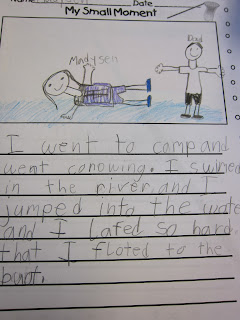 Name Madysen Date
My Small Moment
Madysen
Dad
I went to camp and
went conowing. I swimed
in the river and I
jumped into the wate
and I lafed so hard.
that I floted to the
bunt.